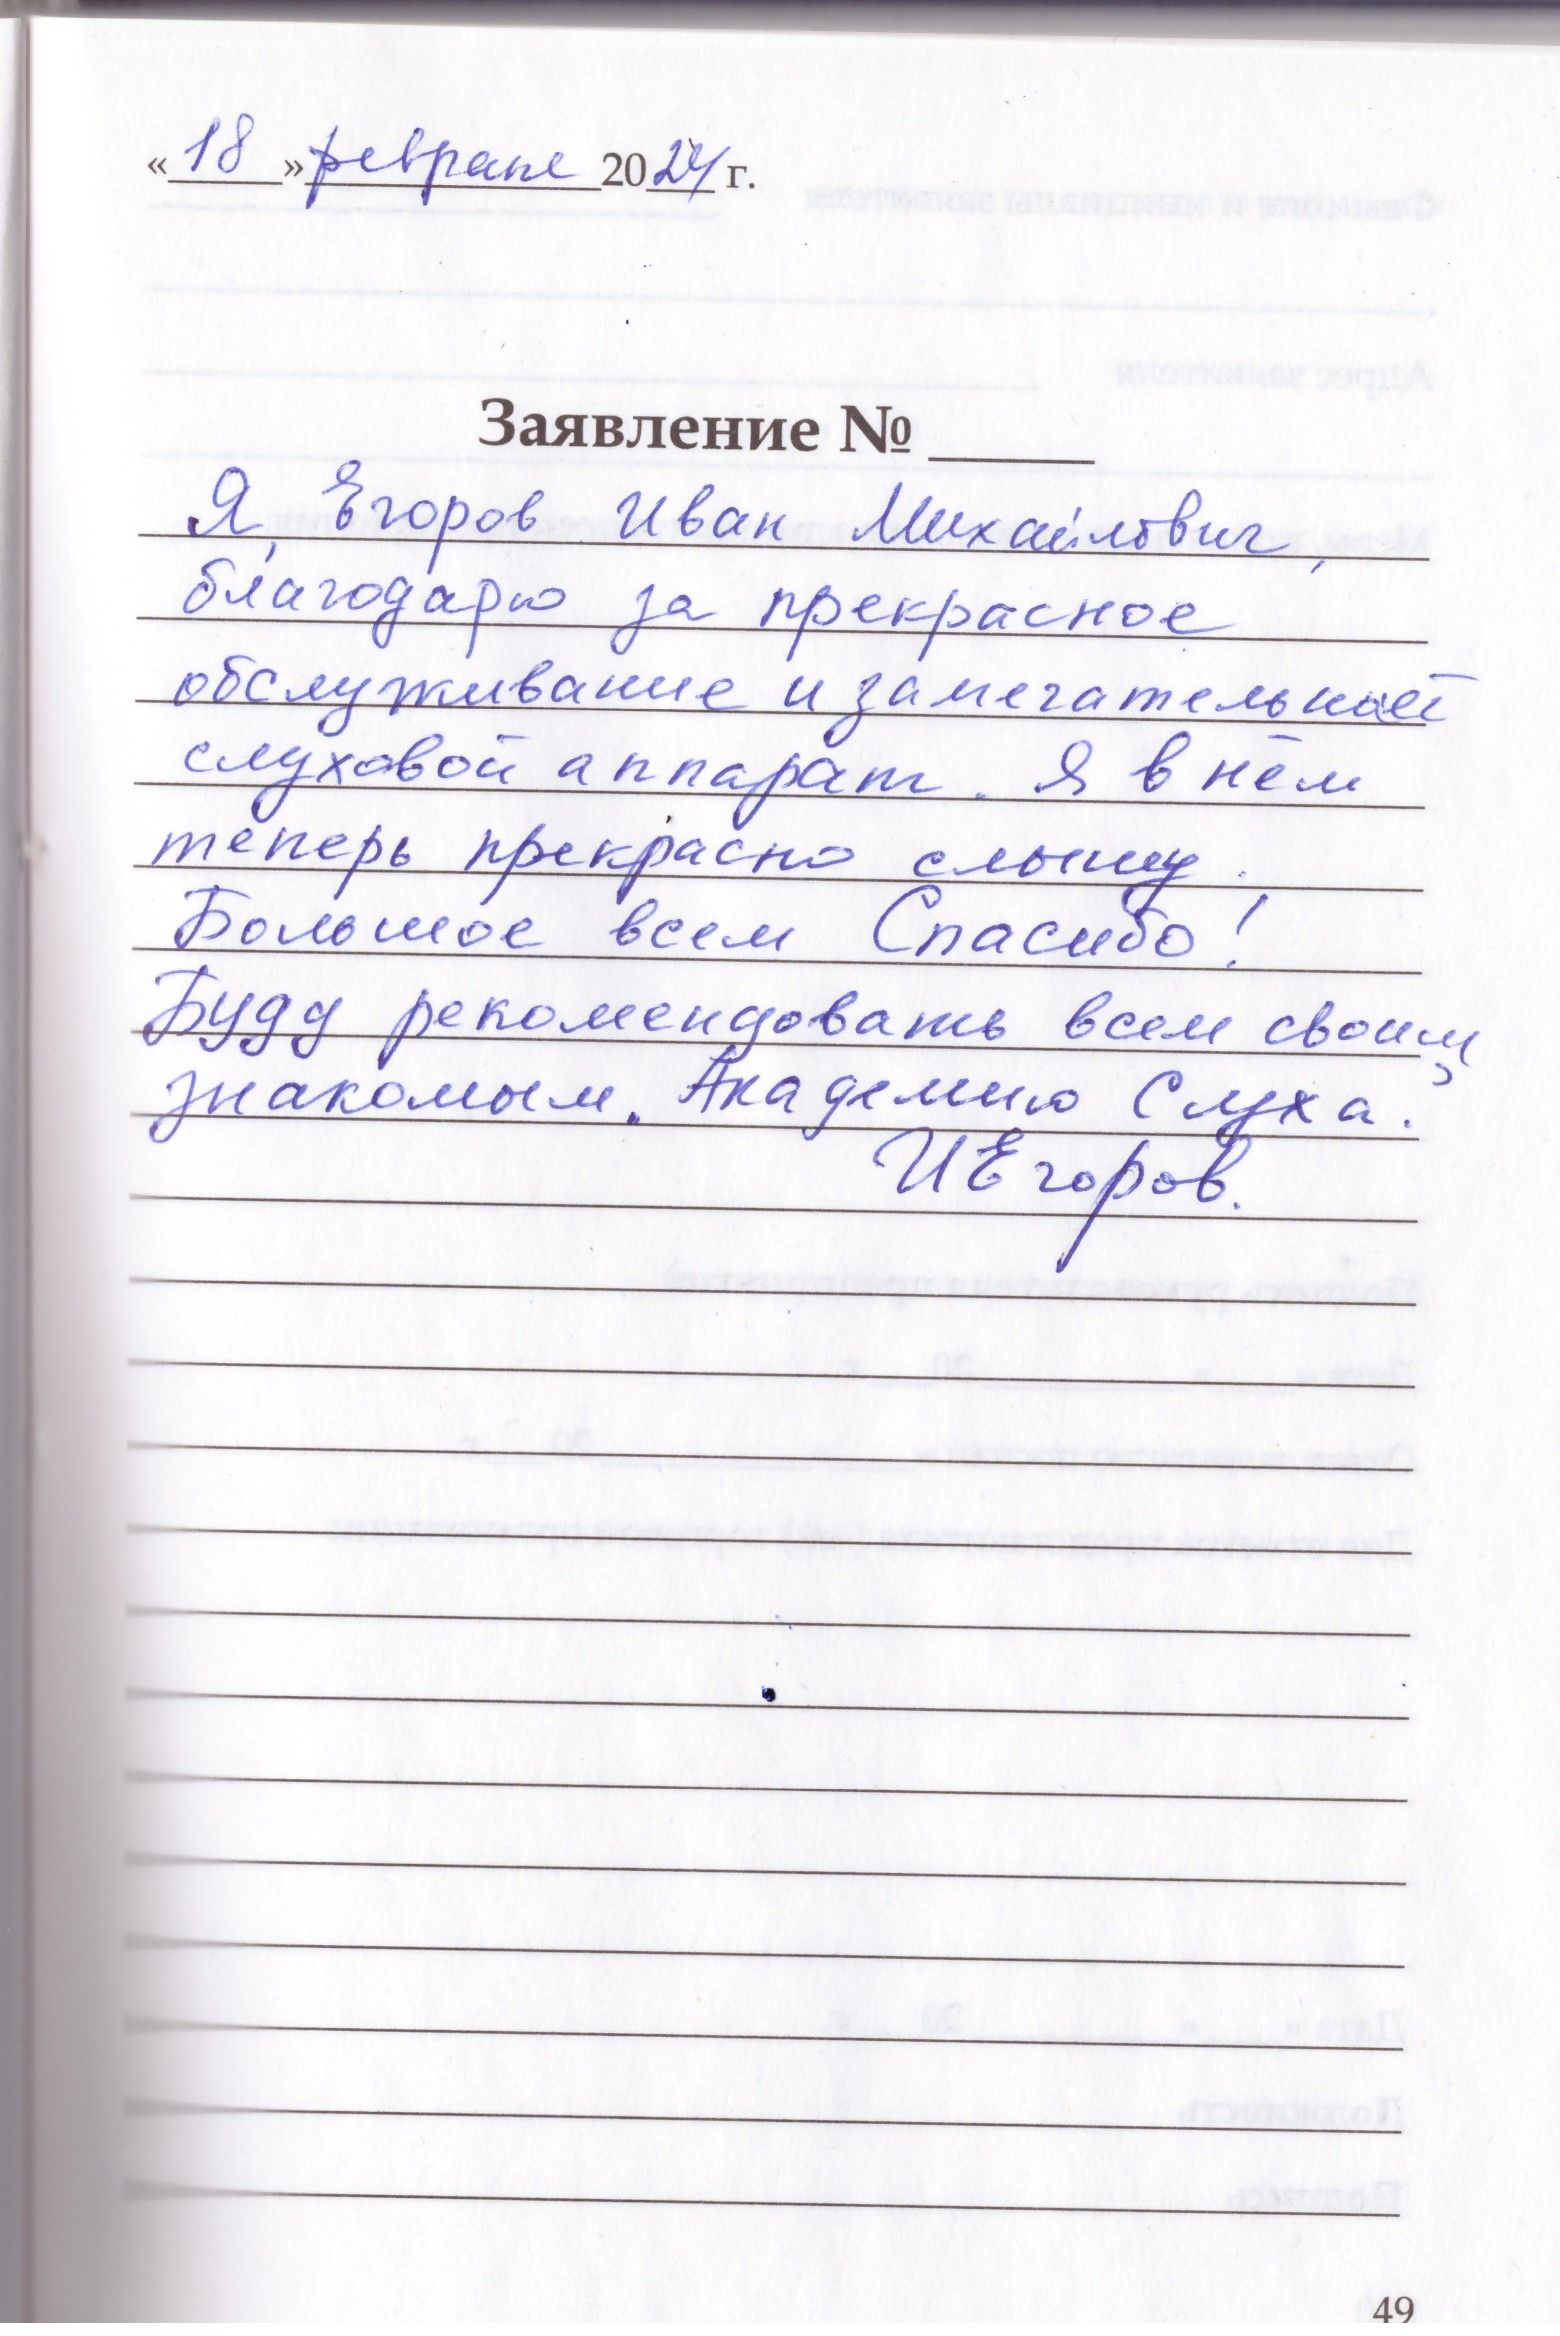 «18» февраля 2024 г.
Заявление № ____
Я, Егоров Иван Михайлович,
благодарю за прекрасное
обслуживание и замечательный
слуховой аппарат. Я в нём
теперь прекрасно слышу.
Большое всем Спасибо!
Буду рекомендовать всем своим
знакомым. Академию Слуха.
И Егоров.
49